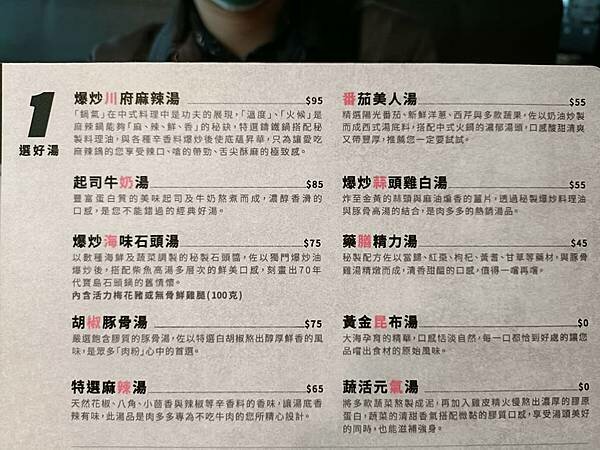 1
選好湯
爆炒川府麻辣湯 $95
「鍋氣」在中式料理中是功夫的展現，「溫度」、「火候」是
麻辣鍋能夠「麻、辣、鮮、香」的秘訣，特選鑄鐵鍋搭配秘
製料理油，與各種辛香料爆炒後使底蘊昇華，只為讓愛吃
麻辣鍋的您享受辣口、嗆的帶勁、舌尖酥麻的極致感。
起司牛奶湯 $85
豐富蛋白質的美味起司及牛奶熬煮而成，濃醇香滑的
口感，是您不能錯過的經典好湯。
爆炒海味石頭湯 $75
以數種海鮮及蔬菜調製的秘製石頭醬，佐以獨門爆炒油
爆炒後，搭配柴魚高湯多層次的鮮美口感，刻畫出70年
代寶島石頭鍋的舊情懷。
內含活力梅花豬或無骨鮮雞腿(100克)
胡椒豚骨湯 $75
嚴選飽含膠質的豚骨湯，佐以特選白胡椒熬出醇厚鮮香的風
味，是眾多「肉粉」心中的首選。
特選麻辣湯 $65
天然花椒、八角、小茴香與辣椒等辛香料的香味，讓湯底香
辣有味，此湯品是肉多多專為不吃牛肉的您所精心設計。
番茄美人湯 $55
精選陽光番茄、新鮮洋蔥、西芹與多款蔬果，佐以奶油炒製
而成西式湯底料，搭配中式火鍋的濃郁湯頭，口感酸甜清爽
又帶豐厚，推薦您一定要試試。
爆炒蒜頭雞白湯 $55
炸至金黃的蒜頭與麻油煸香的薑片，透過秘製爆炒料理油
與豚骨高湯的結合，是肉多多的熱銷湯品。
藥膳精力湯 $45
秘製配方佐以當歸、紅棗、枸杞、黃耆、甘草等藥材，與豚骨
雞湯精燉而成，清香甜醞的口感，值得一嚐再嚐。
黃金昆布湯 $0
大海孕育的精華，口感恬淡自然，每一口都恰到好處的讓您
品嚐出食材的原始風味。
蔬活元氣湯 $0
將多款蔬菜熬製成泥，再加入雞皮精火慢熬出濃厚的膠原
蛋白，蔬菜的清甜香氣搭配微黏的膠質口感，享受湯頭美好
的同時，也能滋補強身。